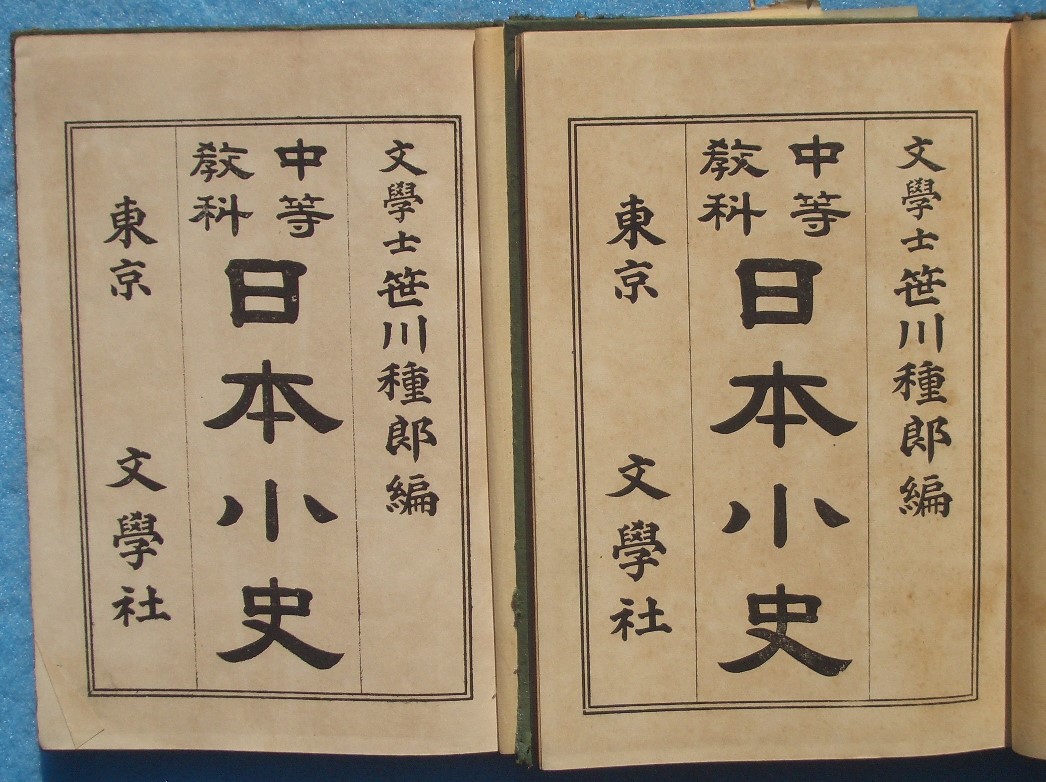 文學士笹川種郎編
中等
教科
日本小史
東京 文學社
文學士笹川種郎編
中等
教科
日本小史
東京 文學社